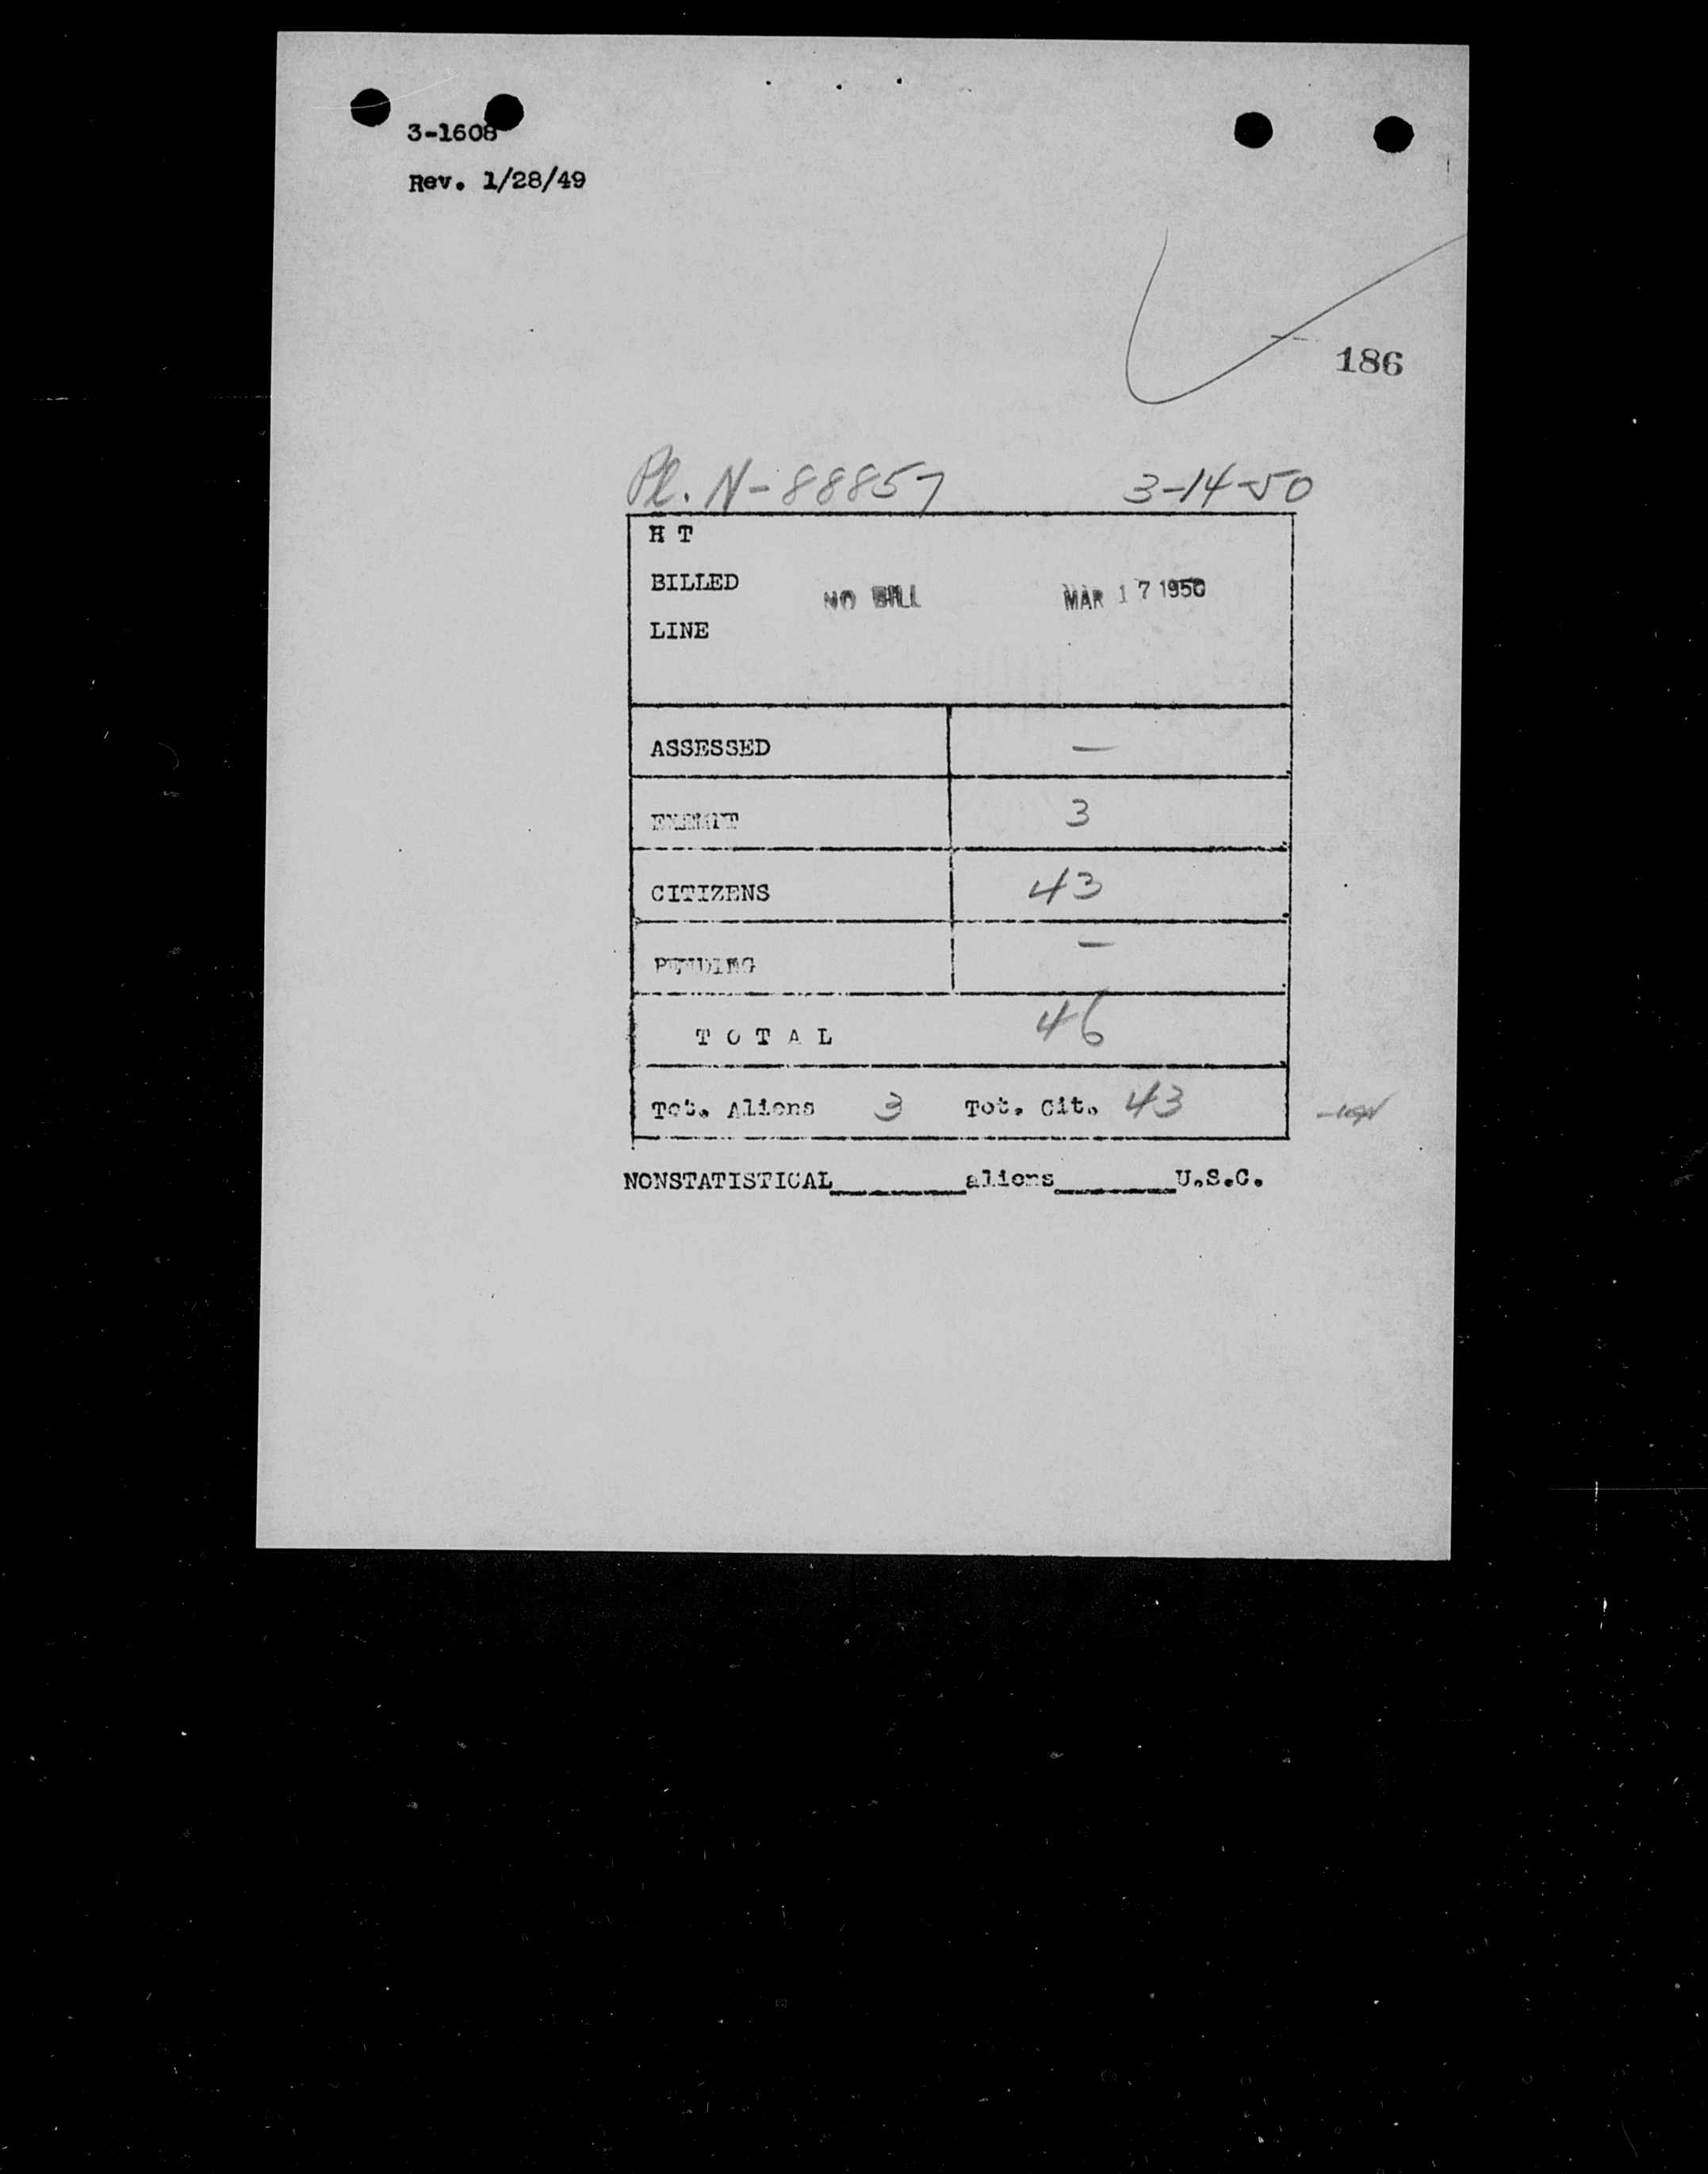 3-1608
Rev. 1/28/49
186
Pl. N-88857 3-14-50
H T
BILLED NO BILL MAR 17 1950
LINE
ASSESSED —
EXEMPT 3
CITIZENS 43
PENDING —
T O T A L 46
Tot. Aliens 3 Tot. Cit. 43
NONSTATISTICAL________aliens_______U.S.C.